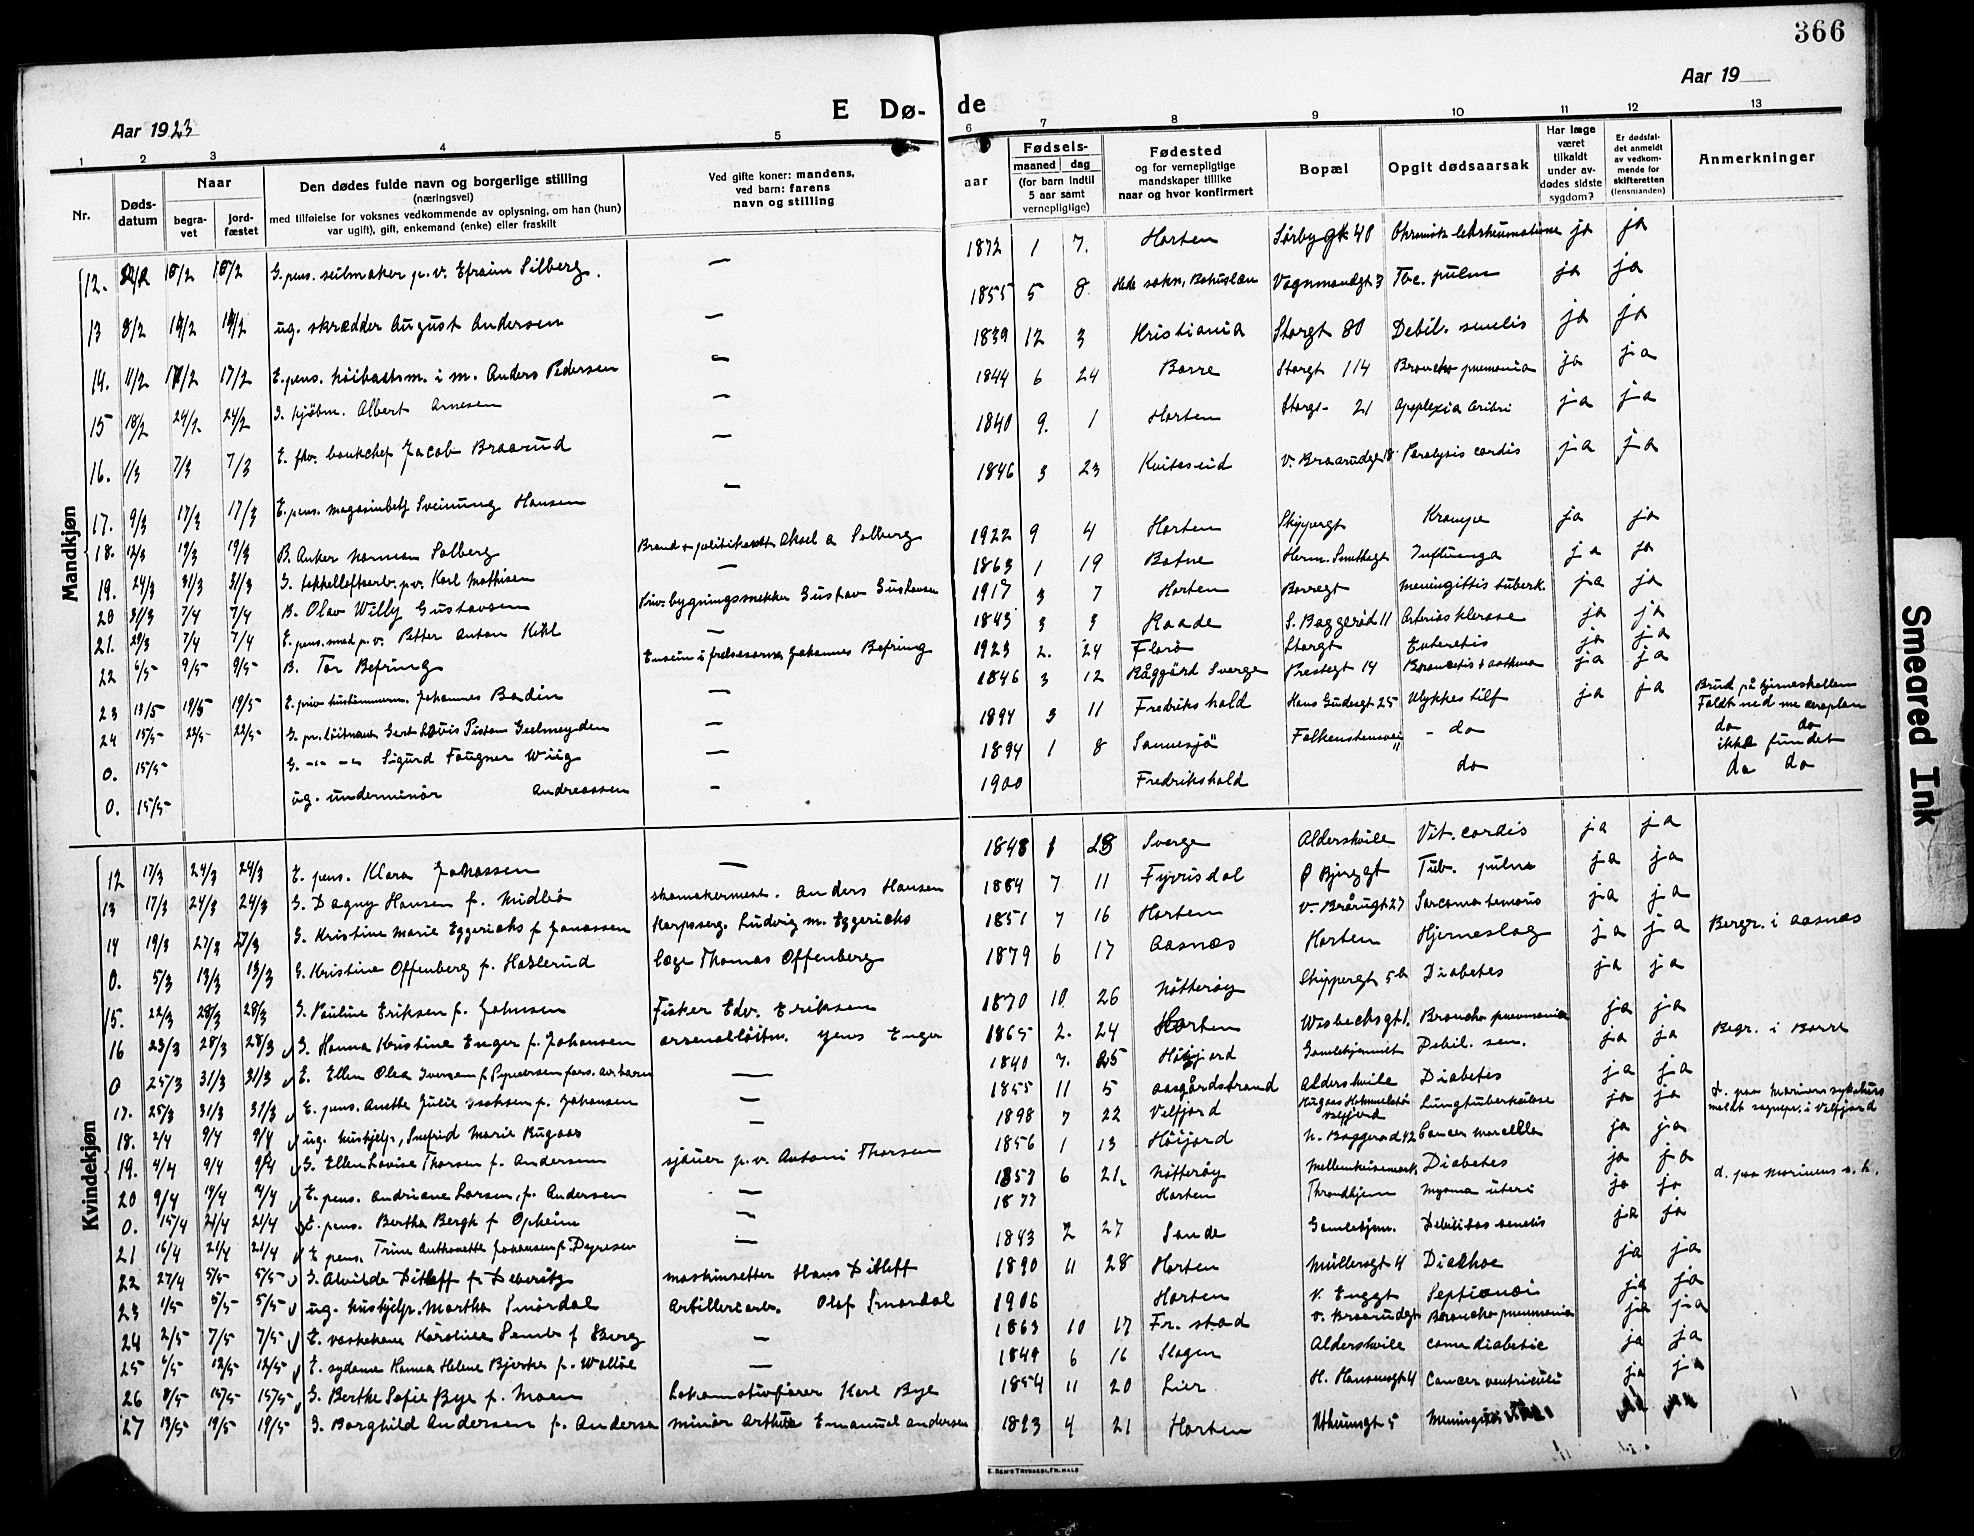 366
Aar 1923
Aar 19
E Dø- de
1 2 3 4 5 6 7 8 9 10 11 12 13
Nr.
Døds-datum
Naar
begra-vet
jord-fæstet
Den dødes fulde navn og borgerlige stilling
(næringsvei)
med tilføielse for voksnes vedkommende av oplysning, om han (hun)
var ugift), gift, enkemand (enke) eller fraskilt
Ved gifte koner: mandens,
ved barn: farens
navn og stilling
Fødsels-
aar
maaned dag
(for barn indtil
5 aar samt
vernepligtige)
Fødested
og for vernepligtige
mandskaper tillike
naar og hvor konfirmert
Bopæl
Opgit dødsaarsak
Har læge
været
tilkaldt
under av-
dødes sidste
sygdom?
Er dødsfal-
det anmeldt
av vedkom-
mende for
skifteretten
(lensmanden)
Anmerkninger
Mandkjøn
12. 10/2 10/2 G. pens. seilmaker p.v. Efraim Silberg. — 1872 1 7. Horten Sørbygt 40 ja ja
13 8/2 14/2 14/2 ug. skrædder August Andersen — 1855 5 8 Hede sokn, Bohuslæn Vognmandgt 3 Tbc. pulm ja ja
14. 11/2 17/2 17/2 E. pens. m. Anders Pedersen — 1839 12 3 Kristiania Storgt 80 Debil. senilis ja ja
15 18/2 24/2 24/2 G. kjøbm. Albert Arnesen — 1844 6 24 Borre Storgt 114 Broncho pnemonia ja ja
16. 1/3 7/3 7/3 E. fhv. bankchef Jacob Braarud — 1840 9. 1 Horten Storgt 21 Apoplexia cerebri ja ja
17. 9/3 17/3 17/3 E. pens. magasinbetj Sveinung Hansen — 1846 3 23 Kviteseid V. Braarudgt 18 Paralysis cordis ja ja
18. 12/3 19/3 19/3 B. Anker Norman Solberg Brand & politikonst. Aksel A Solberg 1922 9 4 Horten Skippergt Krampe ja ja
19. 24/3 31/3 31/3 G. p.v. Karl Mathisen — 1863 1 19 Botne Herm. Smithsgt Influenga ja ja
20 31/3 7/4 7/4 B. Olav Willy Gustavsen Priv. bygningssnekker Gustav Gustavsen 1917 3 7 Horten Borregt Meningittis tuberk. ja ja
21. 29/3 7/4 7/4 E. pens. smed p.v. Petter Anton Kihl — 1843 3 3 Raade S. Baggerød 11 Arteriosklerose ja ja
22 6/5 9/5 9/5 B. Tor Befring Ensein i frelsesarme Johannes Befring 1923 2. 24 Florø Storgt Enteretis ja ja
23 13/5 19/5 19/5 E. priv. hustømmerm. Johannes Bodin — 1846 3 12 Råggärd Sverge Prestegt 14 Broncetis + asthma ja ja
24 15/5 22/5 22/5 G. pr. løitnant Gert Lovis Pistom Geelmeyden — 1894 3 11 Fredrikshald Hans Gudesgt 25 Ulykkestilf ja ja Brud på hjerneskallen Faldt ned me aeroplan
0. 15/5 G. -"- -"- Sigurd Fougner Wiig — 1894 1 8 Sannesjø Falkenstensvei 11 - do do do ikke fundet
0. 15/5 ug. underminør Andreassen — 1900 Fredrikshald do do do
Kvindekjøn
12 17/3 24/3 24/3 E. pens. Klara Johassen — 1848 1 28 Sverge Aldershvile Vit. cordis ja ja
13 17/3 24/3 24/3 G. Dagny Hansen f. Midbø skomakermest. Anders Hansen 1884 7 11 Fyrisdal Ø Bjerggt Tub. pulm ja ja
14 19/3 27/3 27/3 G. Kristine Marie Eggerichs f Jonassen Korpsserg. Ludvig M. Eggerichs 1851 7 16 Horten V. Brårugt 27 Sarcoma femoris ja ja
0. 5/3 13/3 13/3 G. Kristine Offenberg f. Haslerud læge Thomas Offenberg 1879 6 17 Aasnæs Horten Hjerneslag ja ja Bergr. i Aasnæs
15. 22/3 28/3 28/3 G. Pauline Eriksen f. Johnsen Fisker Edv. Eriksen 1870 10. 26 Nøtterøy Skippergt 5b Diabetes ja ja
16 23/3 28/3 28/3 G. Hanna Kristine Enger f. Johansen arsenalløitn. Jens Enger 1865 2. 24 Horten Wisbechsgt 1. Broncho pneumonia ja ja
0 25/3 31/3 31/3 E. Ellen Olea Iversen f. — 1840 7. 25 Høijord Gamlehjemmet Debil. sen. ja ja Begr. i Borre
17. 25/3 31/3 31/3 E. pens. Anette Julie Isaksen f. Johansen — 1855 11 5 Aasgårdstrand Aldershvile Diabetes ja ja
18. 2/4 9/4 9/4 ug. hushjelp, Snefrid Marie Rugaas — 1898 7 22 Velfjord Velfjord Lungtuberkulose ja ja d. paa Marinens sykehus meldt sognepr. i Velfjord
19. 4/4 9/4 9/4 G. Ellen Lovise Thorsen f. Andersen sjauer p.v. Antoni Thorsen 1856 1 13 Høijord N. Baggerød 42 Cancer ja ja
20 9/4 14/4 14/4 E. pens. Andriane Larsen, f. Andersen — 1857 6 21. Nøtterøy Diabetes ja ja
0. 15/4 21/4 21/4 E. pens. Bertha Bergh f Opheim — 1877 Horten Throndhjem Myoma uteri ja ja d. paa Marinens s.h.
21 16/4 21/4 21/4 E pens. Trine Anthonette Johansen f. Dyresen — 1843 2 27 Sande Gamlehjem. Debilitas senelis ja ja
22 27/4 5/5 5/5 G. Alvilde Ditleff f. maskinsetter Hans Ditleff 1890 11 28 Horten Müllersgt 4 Diarhoe ja ja
23 1/5 5/5 5/5 ug. hushjelp. Martha Smørdal Artilleriarb. Olaf Smørdal 1906 Horten V. Enggt ja ja
24 2/5 7/5 7/5 E. vaskekone Karoline Semb f Berg — 1863 10 17 Fr. stad V. Braarudgt Broncho pneumonia ja ja
25 6/5 12/5 12/5 E. sydame Hanna Helene Bjerke f. Walløe — 1849 6 16 Slagen Aldershvile coma diabetic ja ja
26 8/5 15/5 15/5 G. Berthe Sofie Bye f. Moen Lokomotivfører Karl Bye 1854 11 20 Lier H. Hansensgt 4 Cancer ventriculi ja ja
27 13/5 19/5 19/5 G. Borghild Andersen f. Anderse minør Arthur Emanuel Andersen 1893 4 21 Horten 5
E. SEM'S TRYKKERI, FR.HALD
Smeared Ink